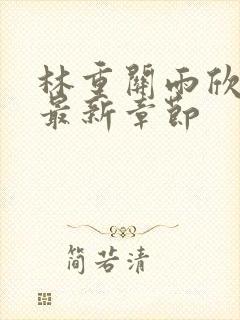 林重關雨欣
最新章節
简若清